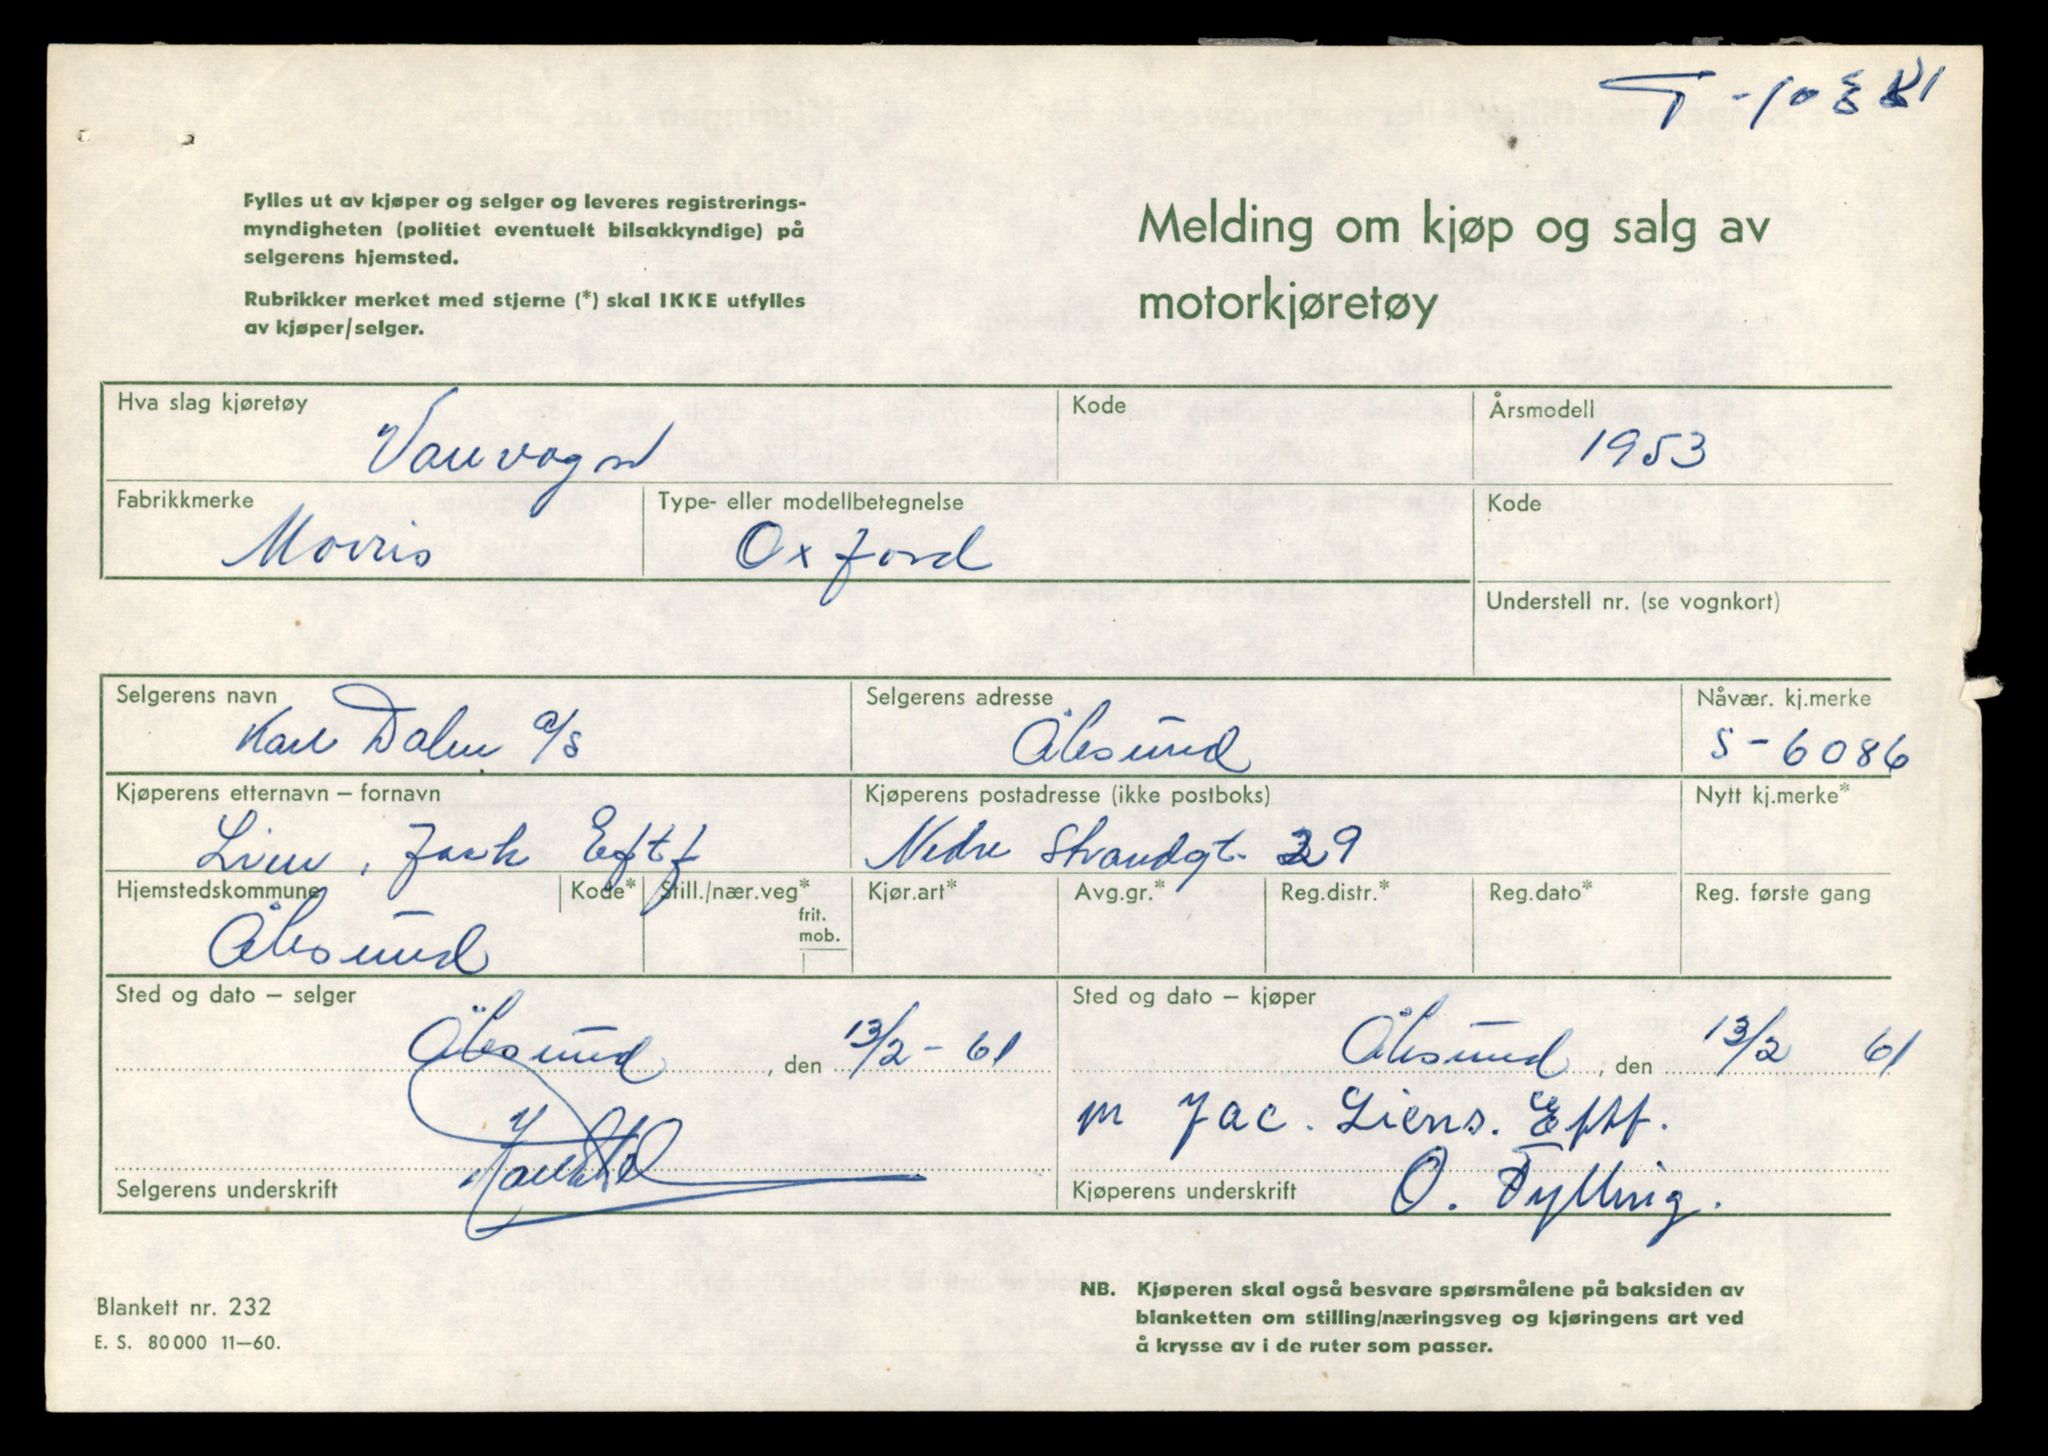 T-10881
Fylles ut av kjøper og selger og leveres registrerings-
myndigheten (politiet eventuelt bilsakkyndige) på
selgerens hjemsted.
Rubrikker merket med stjerne (*) skal IKKE utfylles
av kjøper/selger.
Melding om kjøp og salg av
motorkjøretøy
Hva slag kjøretøy
Varevogn
Kode
Årsmodell
1953
Fabrikkmerke
Morris
Type- eller modellbetegnelse
Oxford
Kode
Understell nr. (se vognkort)
Selgerens navn
Karl Dalen a/s
Selgerens adresse
Ålesund
Nåvær. kj.merke
S-6086
Kjøperens etternavn – fornavn
Lien, Jack Eftf
Kjøperens postadresse (ikke postboks)
Nedre Strandgt. 29
Nytt kj.merke*
Hjemstedskommune
Ålesund
Kode*
Still./nær.veg*
frit.
mob.
Kjør.art*
Avg.gr.*
Reg.distr.*
Reg.dato*
Reg. første gang
Sted og dato – selger
Ålesund, den 13/2-61
Selgerens underskrift
Sted og dato – kjøper
Ålesund, den 13/2 61
m Jac. Liens. Eftf.
Kjøperens underskrift O. Fylling.
Blankett nr. 232
E. S. 80000 11–60.
NB. Kjøperen skal også besvare spørsmålene på baksiden av
blanketten om stilling/næringsveg og kjøringens art ved
å krysse av i de ruter som passer.